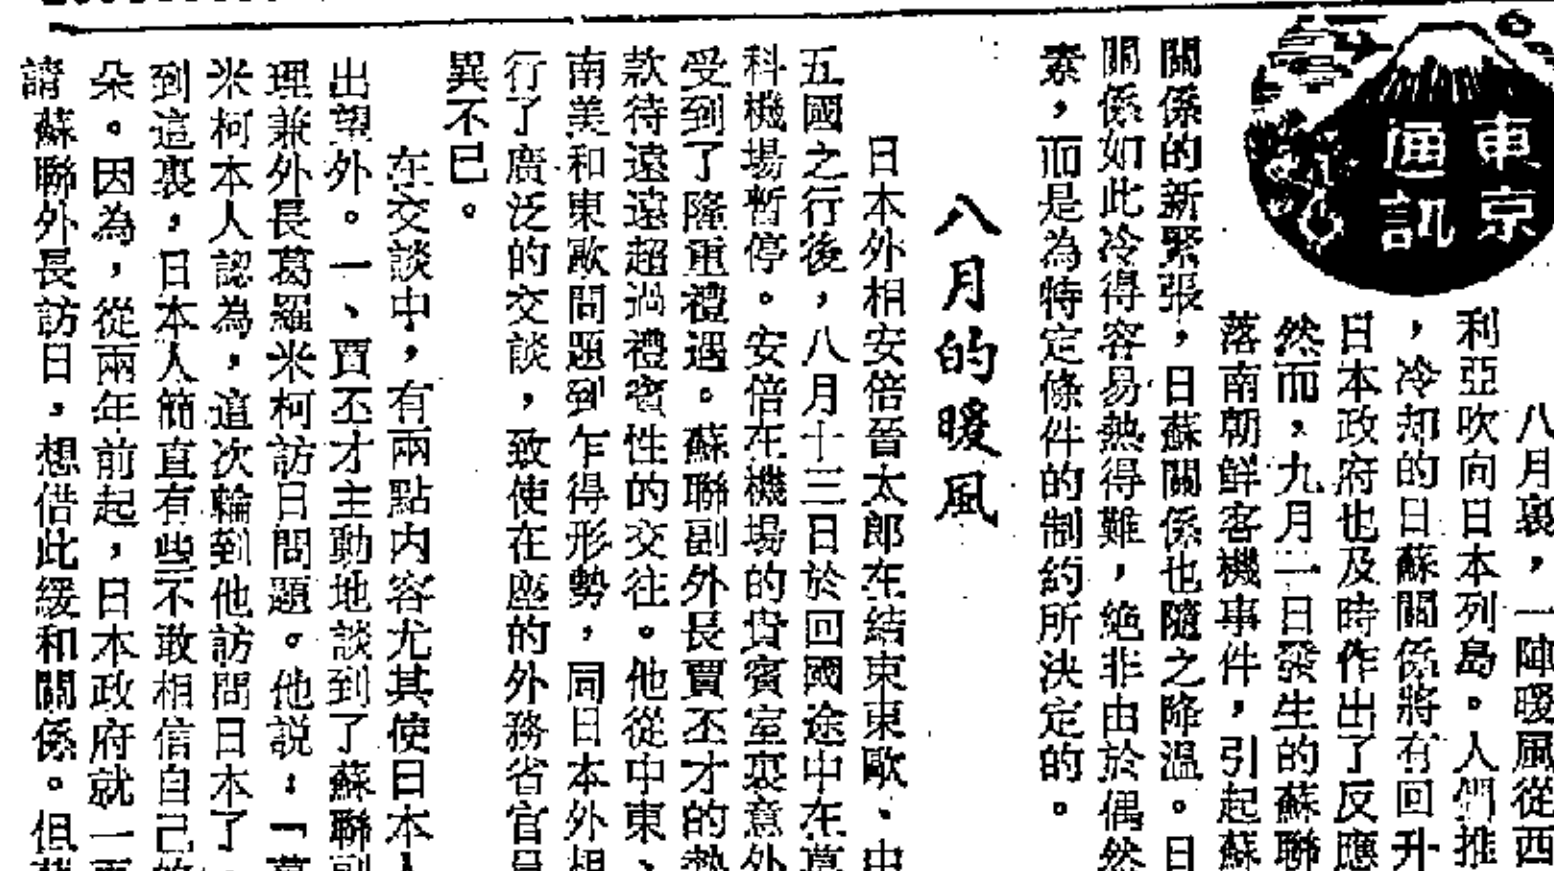 東京
通訊
八月裏，一陣暖風從西
利亞吹向日本列島。人們推
，冷却的日蘇關係將有回升
日本政府也及時作出了反應
然而，九月一日發生的蘇聯
落南朝鮮客機事件，引起蘇
關係的新緊張，日蘇關係也隨之降温。日
關係如此冷得容易熱得難，絶非由於偶然
素，而是為特定條件的制約所決定的。
八月的暖風
日本外相安倍晉太郎在結束東歐、中
五國之行後，八月十三日於回國途中在莫
科機場暫停。安倍在機場的貴賓室裏意外
受到了隆重禮遇。蘇聯副外長賈丕才的熱
款待遠遠超過禮賓性的交往。他從中東、
南美和東歐問題到乍得形勢，同日本外相
行了廣泛的交談，致使在座的外務省官員
異不已。
在交談中，有兩點内容尤其使日本人
出望外。一、賈丕才主動地談到了蘇聯副
理兼外長葛羅米柯訪日問題。他説：「葛
米柯本人認為，這次輪到他訪問日本了。
到這裏，日本人簡直有些不敢相信自己的
朵。因為，從兩年前起，日本政府就一再
請蘇聯外長訪日，想借此緩和關係。但蘇